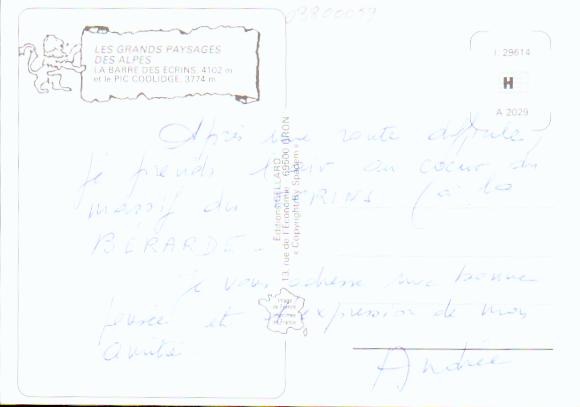 03800059
LES GRANDS PAYSAGES
DES ALPES
LA BARRE DES ECRINS, 4102 m
et le PIC COOLIDGE, 3774 m
I. 29614
H
A 2029
Après une route difficile
je prends l'air au coeur du
massif du ECRINS (à la
BÉRARDE -
Je vous adresse une bonne
pensée et expression de mon
amitié
Andrée
Editions GELLARD
13, rue de l'Economie - 69500 BRON
« Copyright by Spadem »